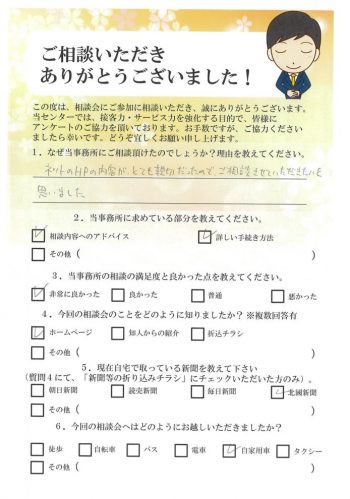 ご相談いただき
ありがとうございました！
この度は、相談会にご参加に相談いただき、誠にありがとうございます。
当センターでは、接客力・サービス力を強化する目的で、皆様に
アンケートのご協力を頂いております。お手数ですが、ご協力ください
ましたら幸いです。どうぞ宜しくお願い申し上げます。
1．なぜ当事務所にご相談頂けたのでしょうか？理由を教えてください。
ネットのHPの内容が、とても親切だったので、ご相談させていただきたいと
思いました
2．当事務所に求めている部分を教えてください。
☑ 相談内容へのアドバイス ☑ 詳しい手続き方法
☐ その他（ ）
3．当事務所の相談の満足度と良かった点を教えてください。
☑ 非常に良かった ☐ 良かった ☐ 普通 ☐ 悪かった
4．今回の相談会のことをどのように知りましたか？※複数回答有
☑ ホームページ ☐ 知人からの紹介 ☐ 折込チラシ
☐ その他（ ）
5．現在自宅で取っている新聞を教えて下さい
（質問4にて、「新聞等の折り込みチラシ」にチェックいただいた方のみ）。
☐ 朝日新聞 ☐ 読売新聞 ☐ 毎日新聞 ☑ 北國新聞
☐ その他（ ）
6．今回の相談会へはどのようにお越しいただきましたか？
☐ 徒歩 ☐ 自転車 ☐ バス ☐ 電車 ☑ 自家用車 ☐ タクシー
☐ その他（ ）